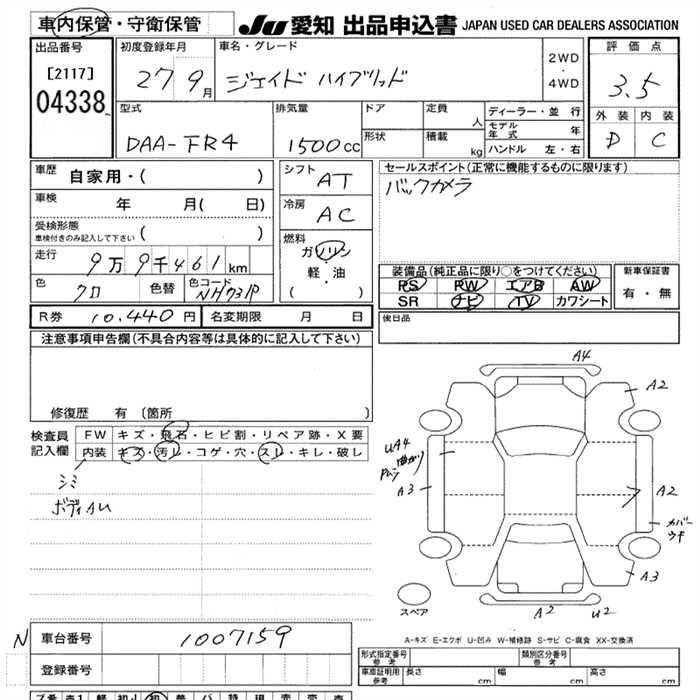 車内保管・守衛保管
JU 愛知 出品申込書 JAPAN USED CAR DEALERS ASSOCIATION
出品番号
[2117]
04338
初度登録年月
27 9月
車名・グレード
ジェイド ハイブリッド
2WD
・
4WD
評価点
3.5
外装 内装
D C
型式
DAA-FR4
排気量
1500cc
ドア
形状
定員 人
積載 kg
ディーラー・並行
モデル年式 年
ハンドル 左・右
車歴 自家用・( )
車検 年 月( 日)
受検形態
車検付きのみ記入して下さい ( )
走行 9万9千461km
色 クロ 色替 色コード NH731P
シフト AT
冷房 AC
燃料
ガソリン
軽・油
( )
セールスポイント(正常に機能するものに限ります)
バックカメラ
装備品(純正品に限り○をつけてください)
PS PW エアB AW
SR ナビ TV カワシート
新車保証書
有・無
R券 10,440円 名変期限 月 日
後日品
注意事項申告欄(不具合内容等は具体的に記入して下さい)
修復歴 有 〔箇所
検査員記入欄
FW キズ・飛石・ヒビ割・リペア跡・X要
内装 キズ・汚レ・コゲ・穴・スレ・キレ・破レ
シミ
ボディAU
A4
A2
UA4
曲がり
A3
A2
カバー
ウキ
A3
A2 U2
スペア
A-キズ E-エクボ U-凹み W-補修跡 S-サビ C-腐食 XX-交換済
N 車台番号 1007159
登録番号
形式指定番号
参考
類別区分番号
参考
車庫証明用
参考
長さ cm 幅 cm 高さ cm